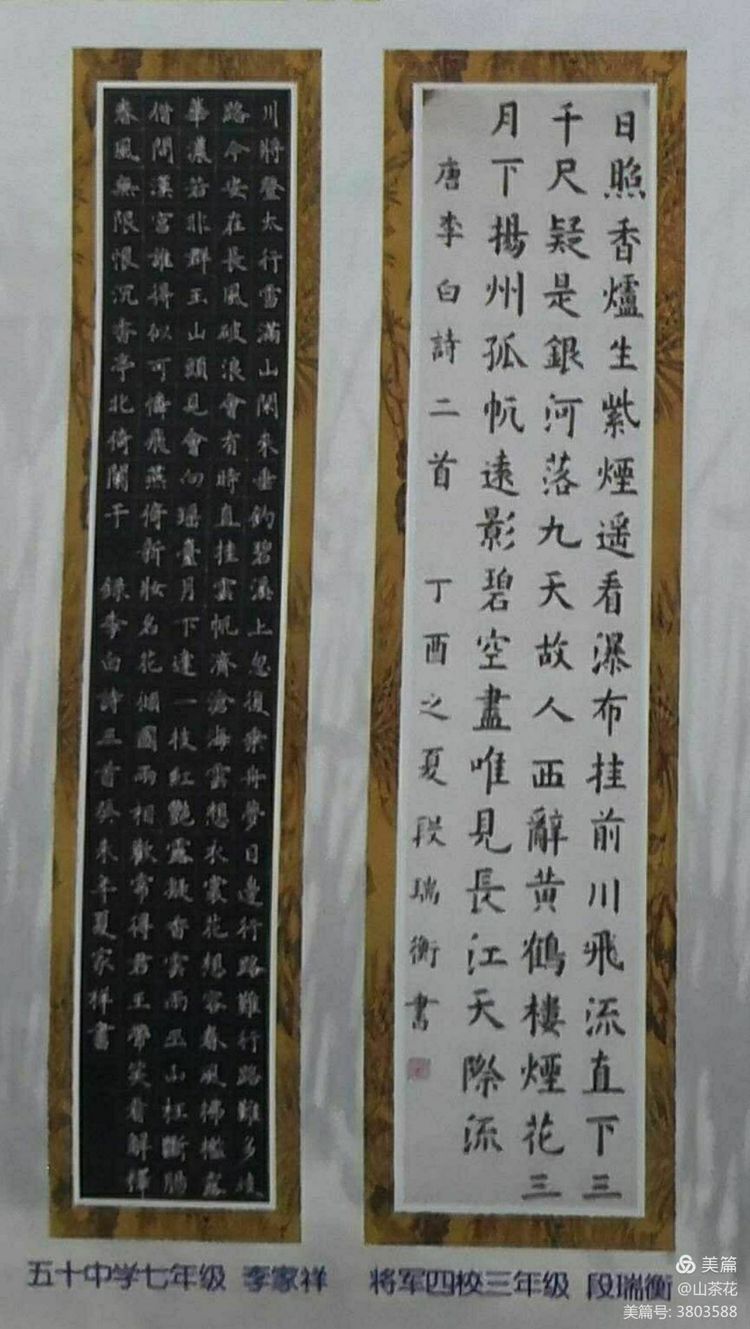 日照香爐生紫煙遥看瀑布挂前川飛流直下三
千尺疑是銀河落九天故人西辭黄鶴樓煙花三
月下揚州孤帆遠影碧空盡唯見長江天際流
唐李白詩二首 丁酉之夏段瑞衡書
川將登太行雪滿山閑來垂釣碧溪上忽復乘舟夢日邊行路難行路難多歧
路今安在長風破浪會有時直挂雲帆濟滄海雲想衣裳花想容春風拂檻露
華濃若非群玉山頭見會向瑶臺月下逢一枝紅艷露凝香雲雨巫山枉斷腸
借問漢宮誰得似可憐飛燕倚新妝名花傾國兩相歡常得君王帶笑看解釋
春風無限恨沉香亭北倚闌干 錄李白詩首癸未年夏家祥書
五十中学七年级 李家祥
将军四校三年级 段瑞衡
美篇
@山茶花
美篇号: 3803588